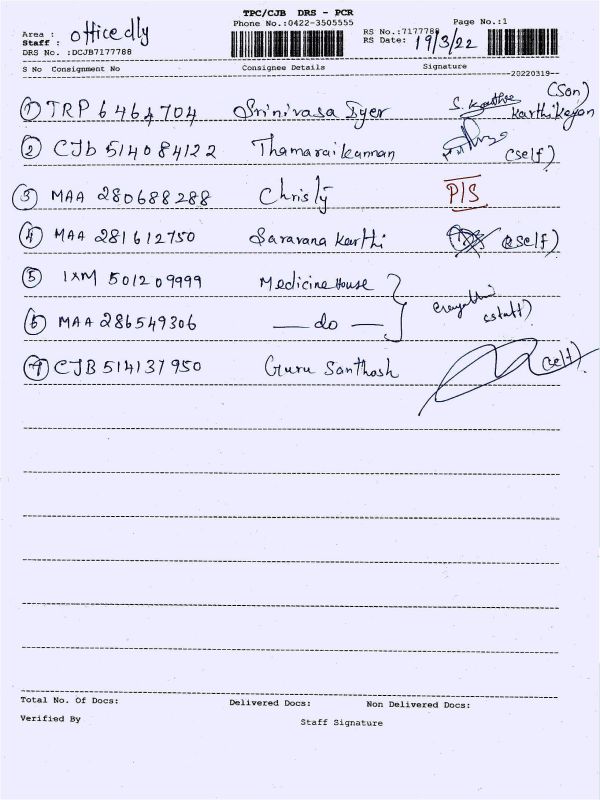 TPC/CJB DRS - PCR
Phone No.:0422-3505555 Page No.:1
Area : office dly RS No.:7177788
Staff : RS Date: 19/3/22
DRS No. :DCJB7177788
S No Consignment No Consignee Details Signature
20220319
1 TRP 6464704 Srinivasa Iyer S. Karthi (Son) Karthikeyan
2 CJb 514084122 Thamaraikannan (self)
3 MAA 280688288 Christy P/S
4 MAA 281612750 Saravana Karthi (self)
5 IXM 501209999 Medicine House
6 MAA 286549306 do (staff)
7 CJB 514137950 Guru Santhosh (self)
Total No. Of Docs: Delivered Docs: Non Delivered Docs:
Verified By Staff Signature